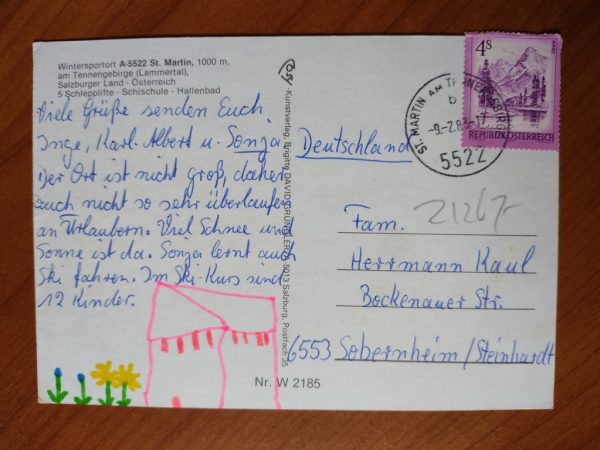 Wintersportort A-5522 St. Martin, 1000 m,
am Tennengebirge (Lammertal),
Salzburger Land - Österreich
5 Schlepplifte - Schischule - Hallenbad
Viele Grüße senden Euch
Inge, Karl-Albert u. Sonja
Der Ort ist nicht groß, daher
auch nicht so sehr überlaufen
an Urlaubern. Viel Schnee und
Sonne ist da. Sonja lernt auch
Ski fahren. Im Ski-Kurs sind
12 Kinder.
-Kunstverlag, Brigitte DAVID 5013 Salzburg, Postfach 35
Nr. W 2185
4 S
REPUBLIK ÖSTERREICH
ST. MARTIN AM TENNENGEBIRGE
b
5522
Deutschland
21267-
Fam.
Herrmann Kaul
Bockenauer Str.
6553 Sobernheim/Steinhardt